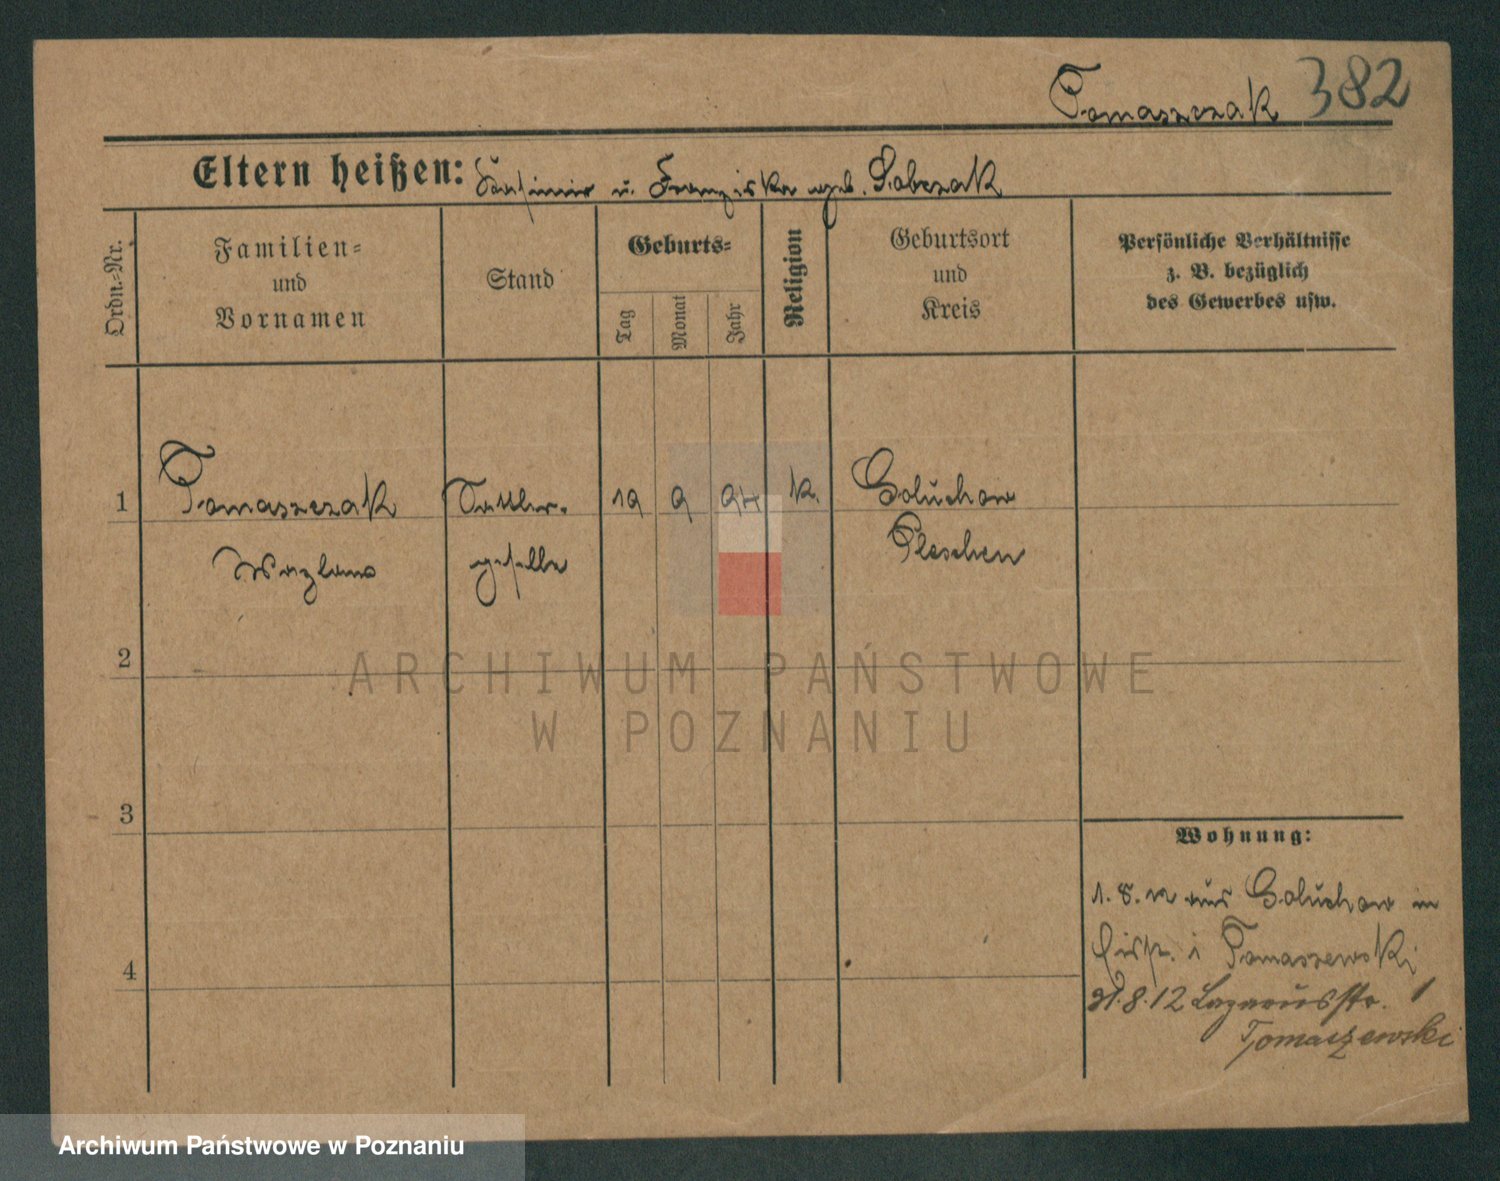 Tomaszczak 382
Eltern heißen: Kasimir u. Franziska geb. Sobczak
Ordn.-Nr.
Familien-
und
Vornamen
Stand
Geburts-
Tag
Monat
Jahr
Religion
Geburtsort
und
Kreis
Persönliche Verhältnisse
z. B. bezüglich
des Gewerbes usw.
1 Tomaszczak Sattler- 19 9 94 k. Goluchow
Wazlaus geselle Pleschen
2
3
4
Wohnung:
1.8.12 aus Goluchow in
i Tomaszewski
31.8.12 Lazarusstr. 1
Tomaszewski
ARCHIWUM PAŃSTWOWE
W POZNANIU
Archiwum Państwowe w Poznaniu